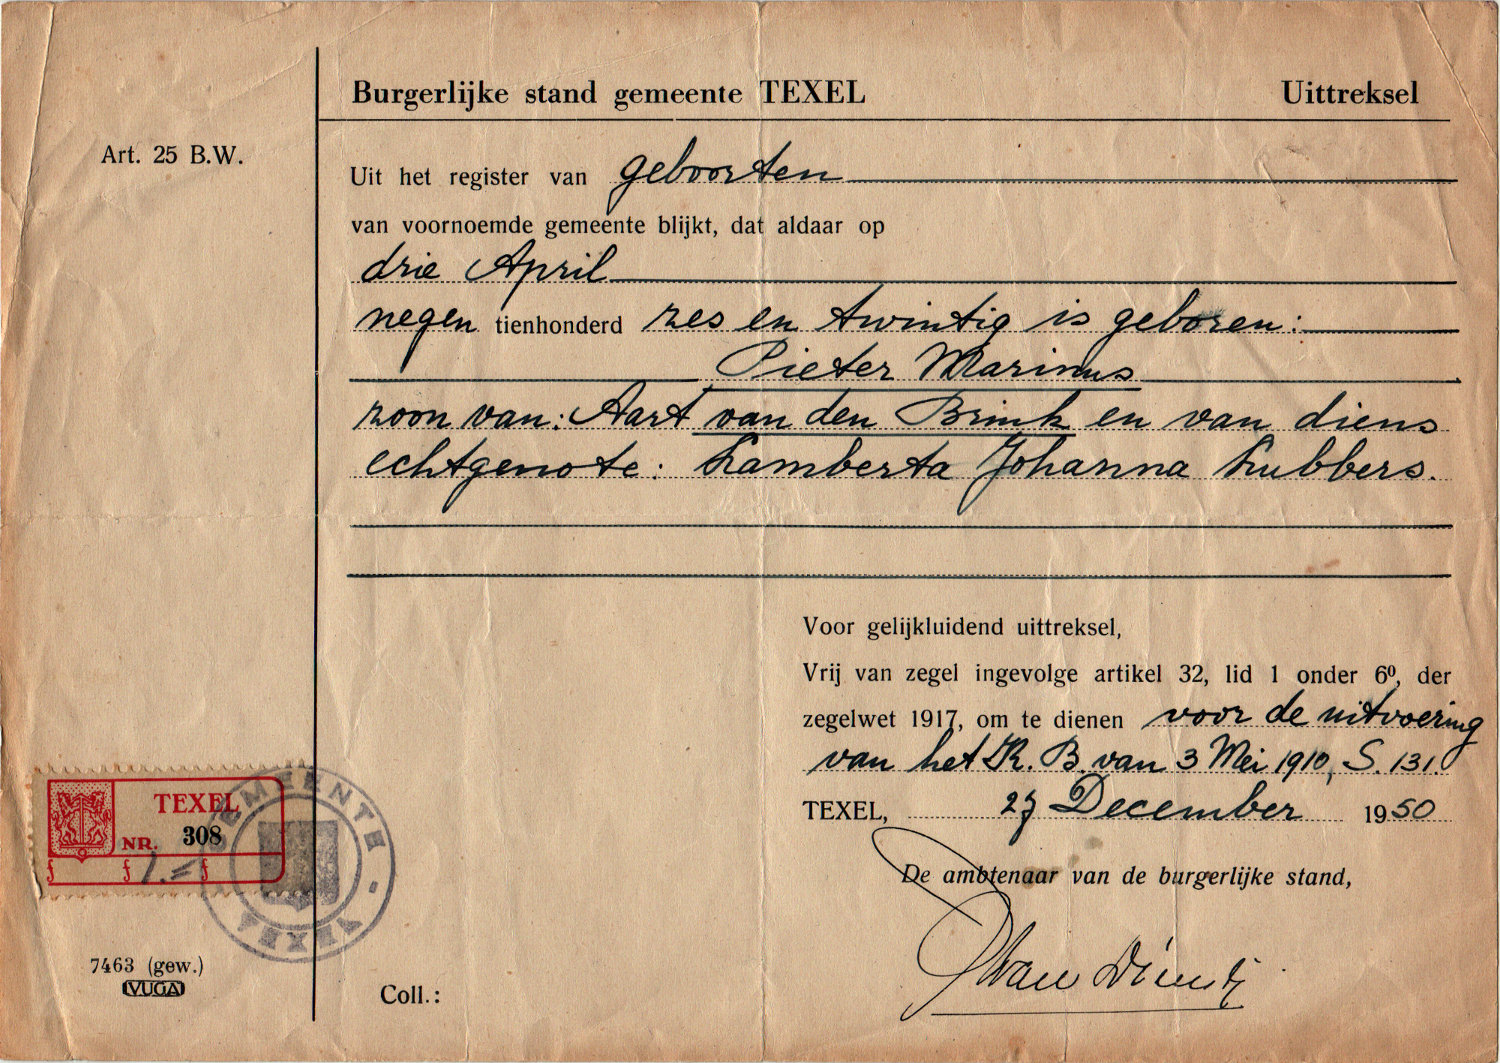 Burgerlijke stand gemeente TEXEL
Uittreksel
Art. 25 B.W.
Uit het register van geboorten
van voornoemde gemeente blijkt, dat aldaar op
drie April
negen tienhonderd zes en twintig is geboren:
Pieter Marinus
zoon van: Aart van den Brink en van diens
echtgenote: Lamberta Johanna Lubbers.
Voor gelijkluidend uittreksel,
Vrij van zegel ingevolge artikel 32, lid 1 onder 6º, der
zegelwet 1917, om te dienen voor de uitvoering
van het K.B. van 3 Mei 1910, S. 131.
TEXEL, 27 December 1950
De ambtenaar van de burgerlijke stand,
van
TEXEL
NR. 308
ƒ ƒ 1.= ƒ
GEMEENTE - TEXEL
7463 (gew.)
VUGA
Coll.: